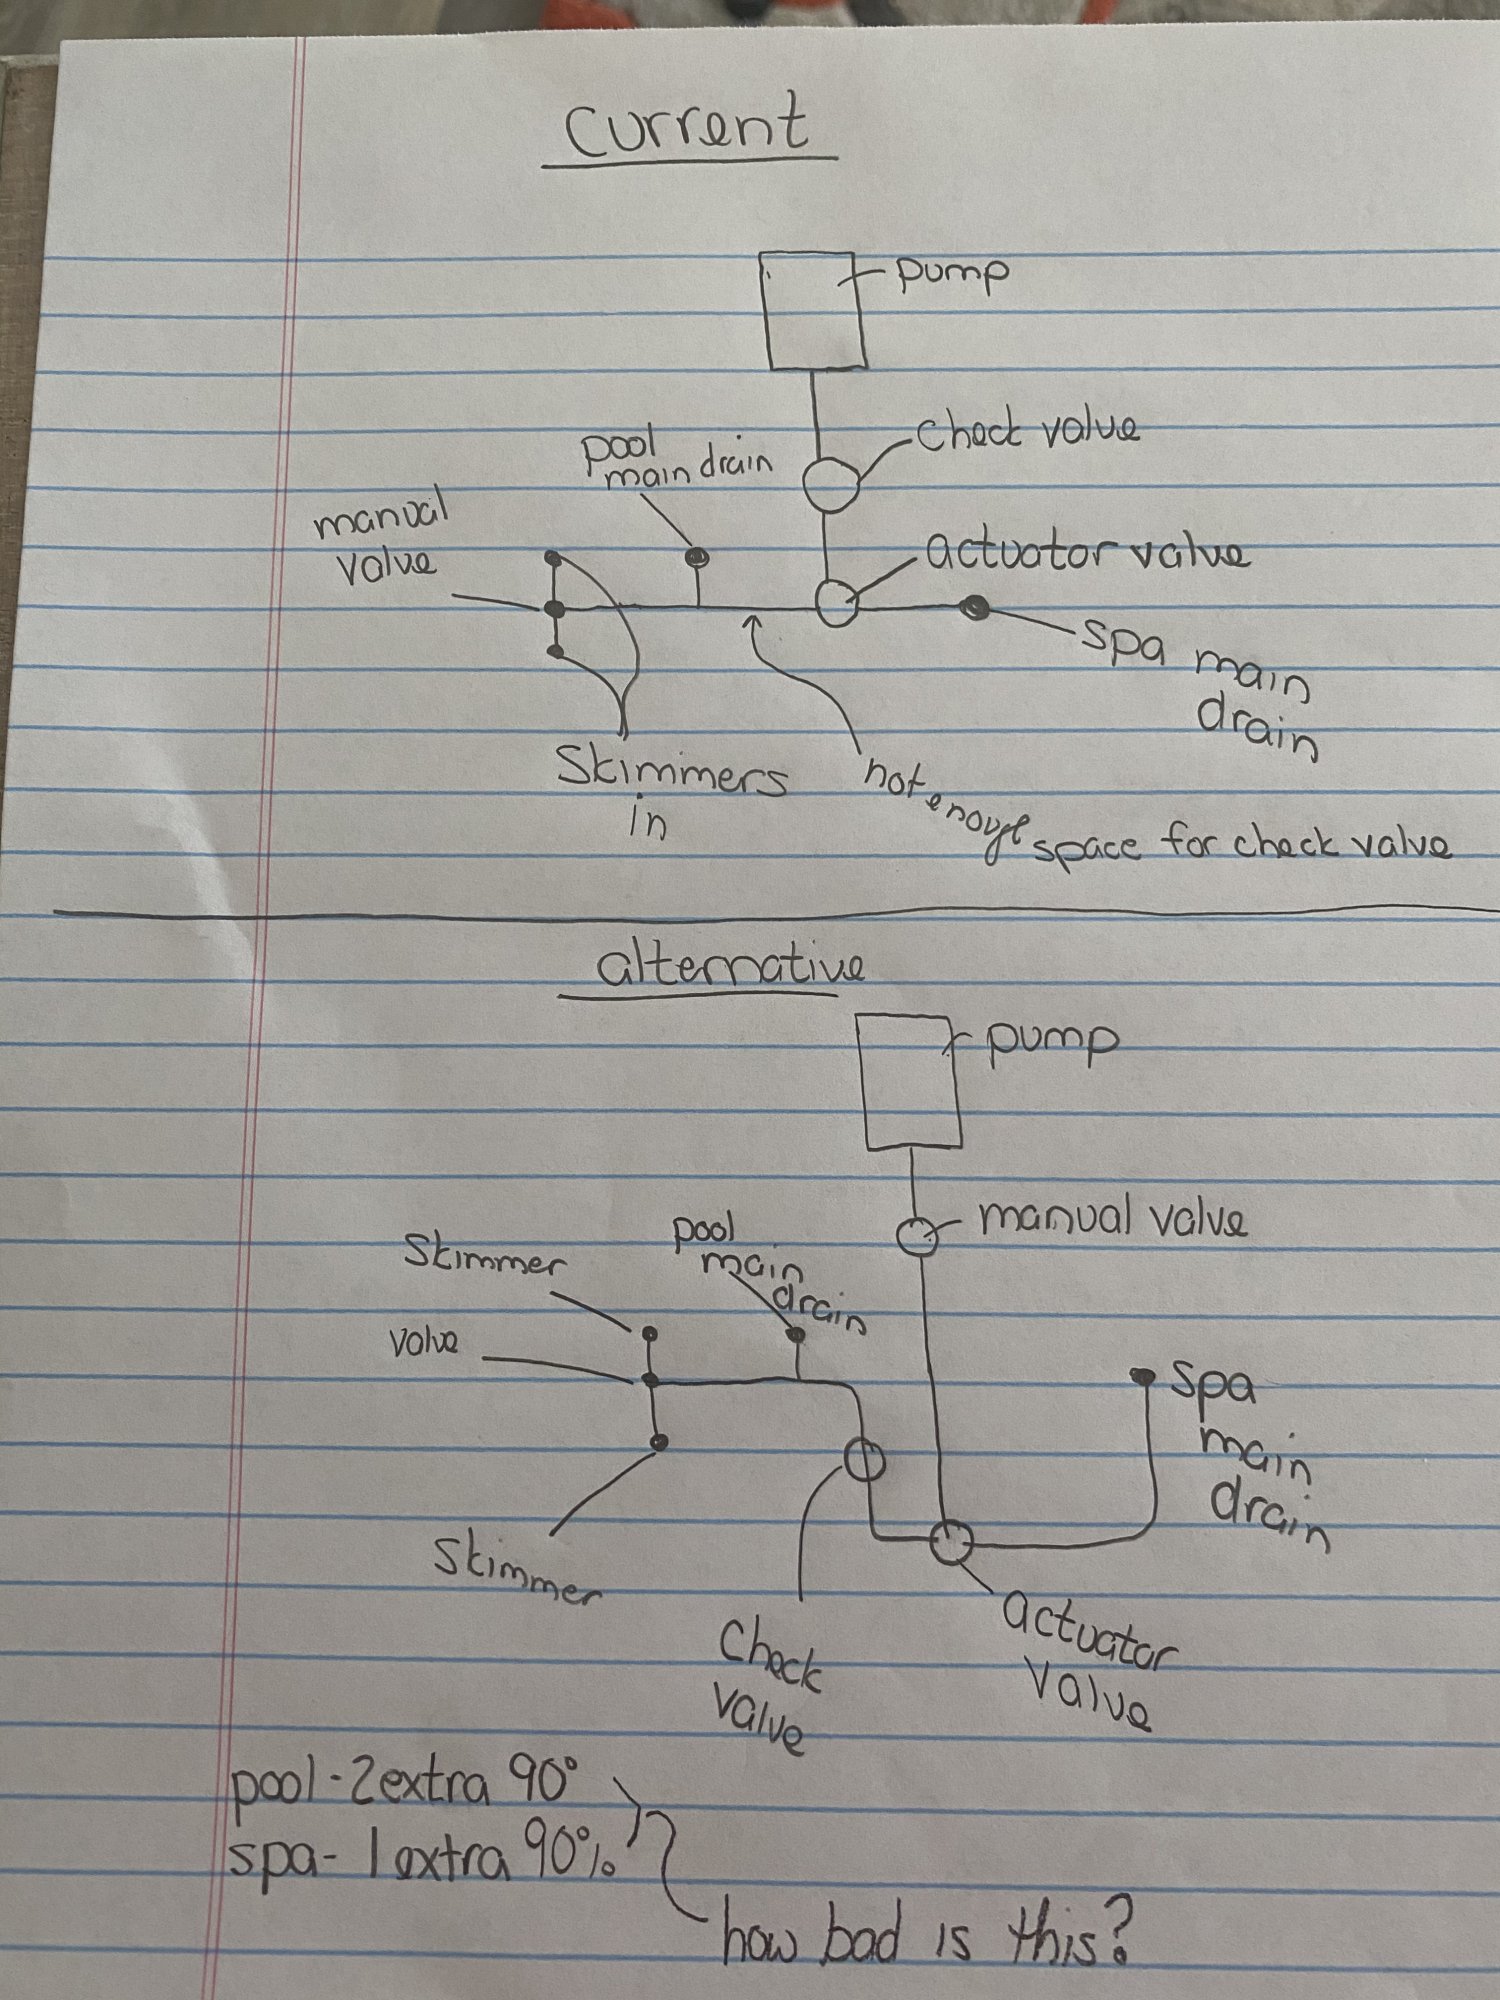 current
pump
check valve
pool
main drain
manual
valve
actuator valve
spa main
drain
Skimmers
in
not enough space for check valve
alternative
pump
manual valve
pool
main
drain
Skimmer
valve
spa
main
drain
Skimmer
actuator
valve
check
valve
pool - 2 extra 90°
spa - 1 extra 90%
how bad is this?